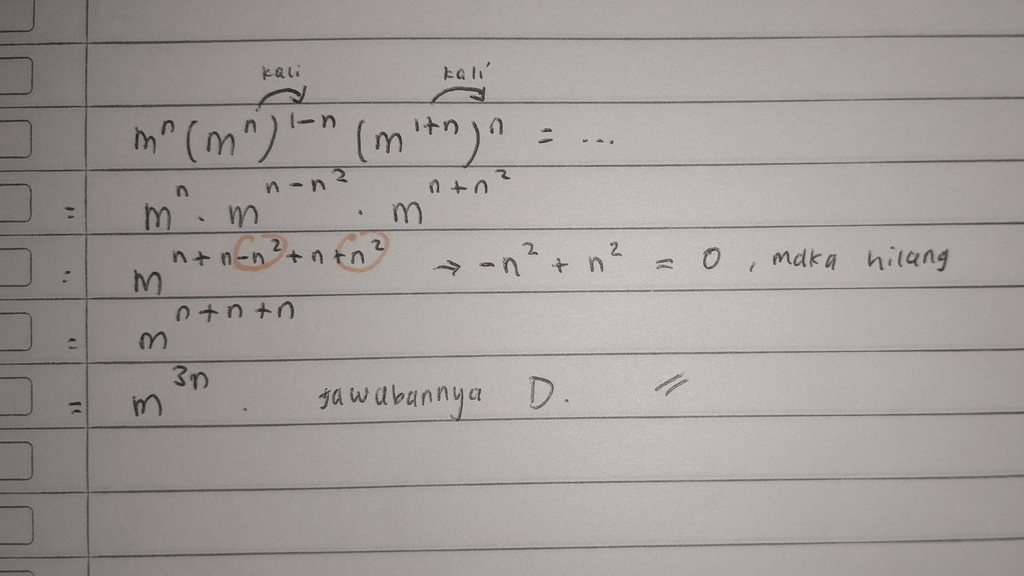 kali kali
mⁿ (mⁿ)¹⁻ⁿ (m¹⁺ⁿ)ⁿ = ...
= mⁿ . m^(n-n²) . m^(n+n²)
= m^(n+n-n²+n+n²) → -n² + n² = 0 , maka hilang
= m^(n+n+n)
= m³ⁿ . jawabannya D. //